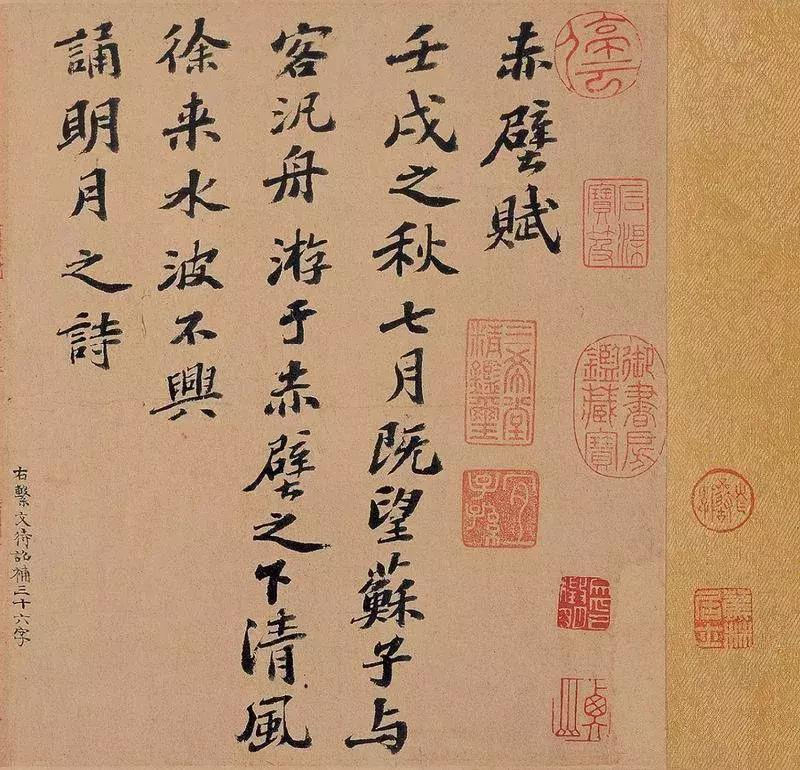 赤壁賦
壬戌之秋七月既望蘇子与
客汎舟游于赤壁之下清風
徐来水波不興
誦明月之詩
右繫文待詔補三十六字
御書房鑑藏寶
三希堂精鑑璽
宜子孫
停云